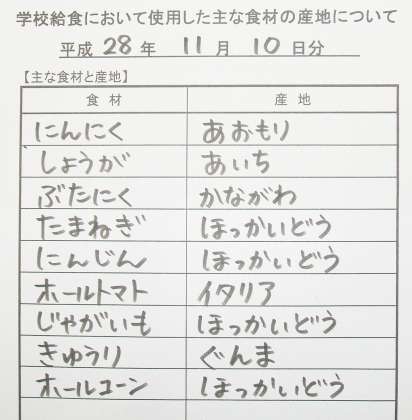 学校給食において使用した主な食材の産地について
平成 28 年 11 月 10 日分
【主な食材と産地】
食材 産地
にんにく あおもり
しょうが あいち
ぶたにく かながわ
たまねぎ ほっかいどう
にんじん ほっかいどう
ホールトマト イタリア
じゃがいも ほっかいどう
きゅうり ぐんま
ホールコーン ほっかいどう